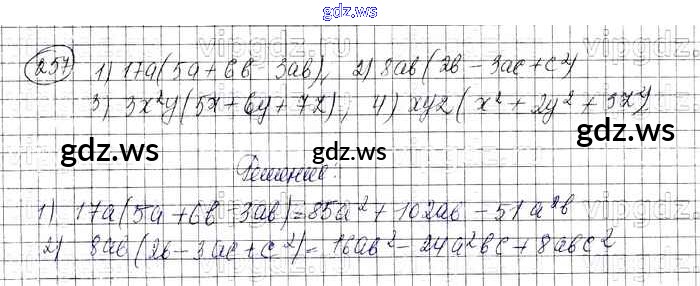 gdz.ws
257 1) 17a(5a + 6b - 3ab), 2) 8ab(2b - 3ac + c²)
3) 3x²y(5x + 6y + 7z), 4) xyz(x² + 2y² + 3z²)
gdz.ws gdz.ws
Решение:
1) 17a(5a + 6b - 3ab) = 85a² + 102ab - 51a²b
2) 8ab(2b - 3ac + c²) = 16ab² - 24a²bc + 8abc²
gdz.ws gdz.ws